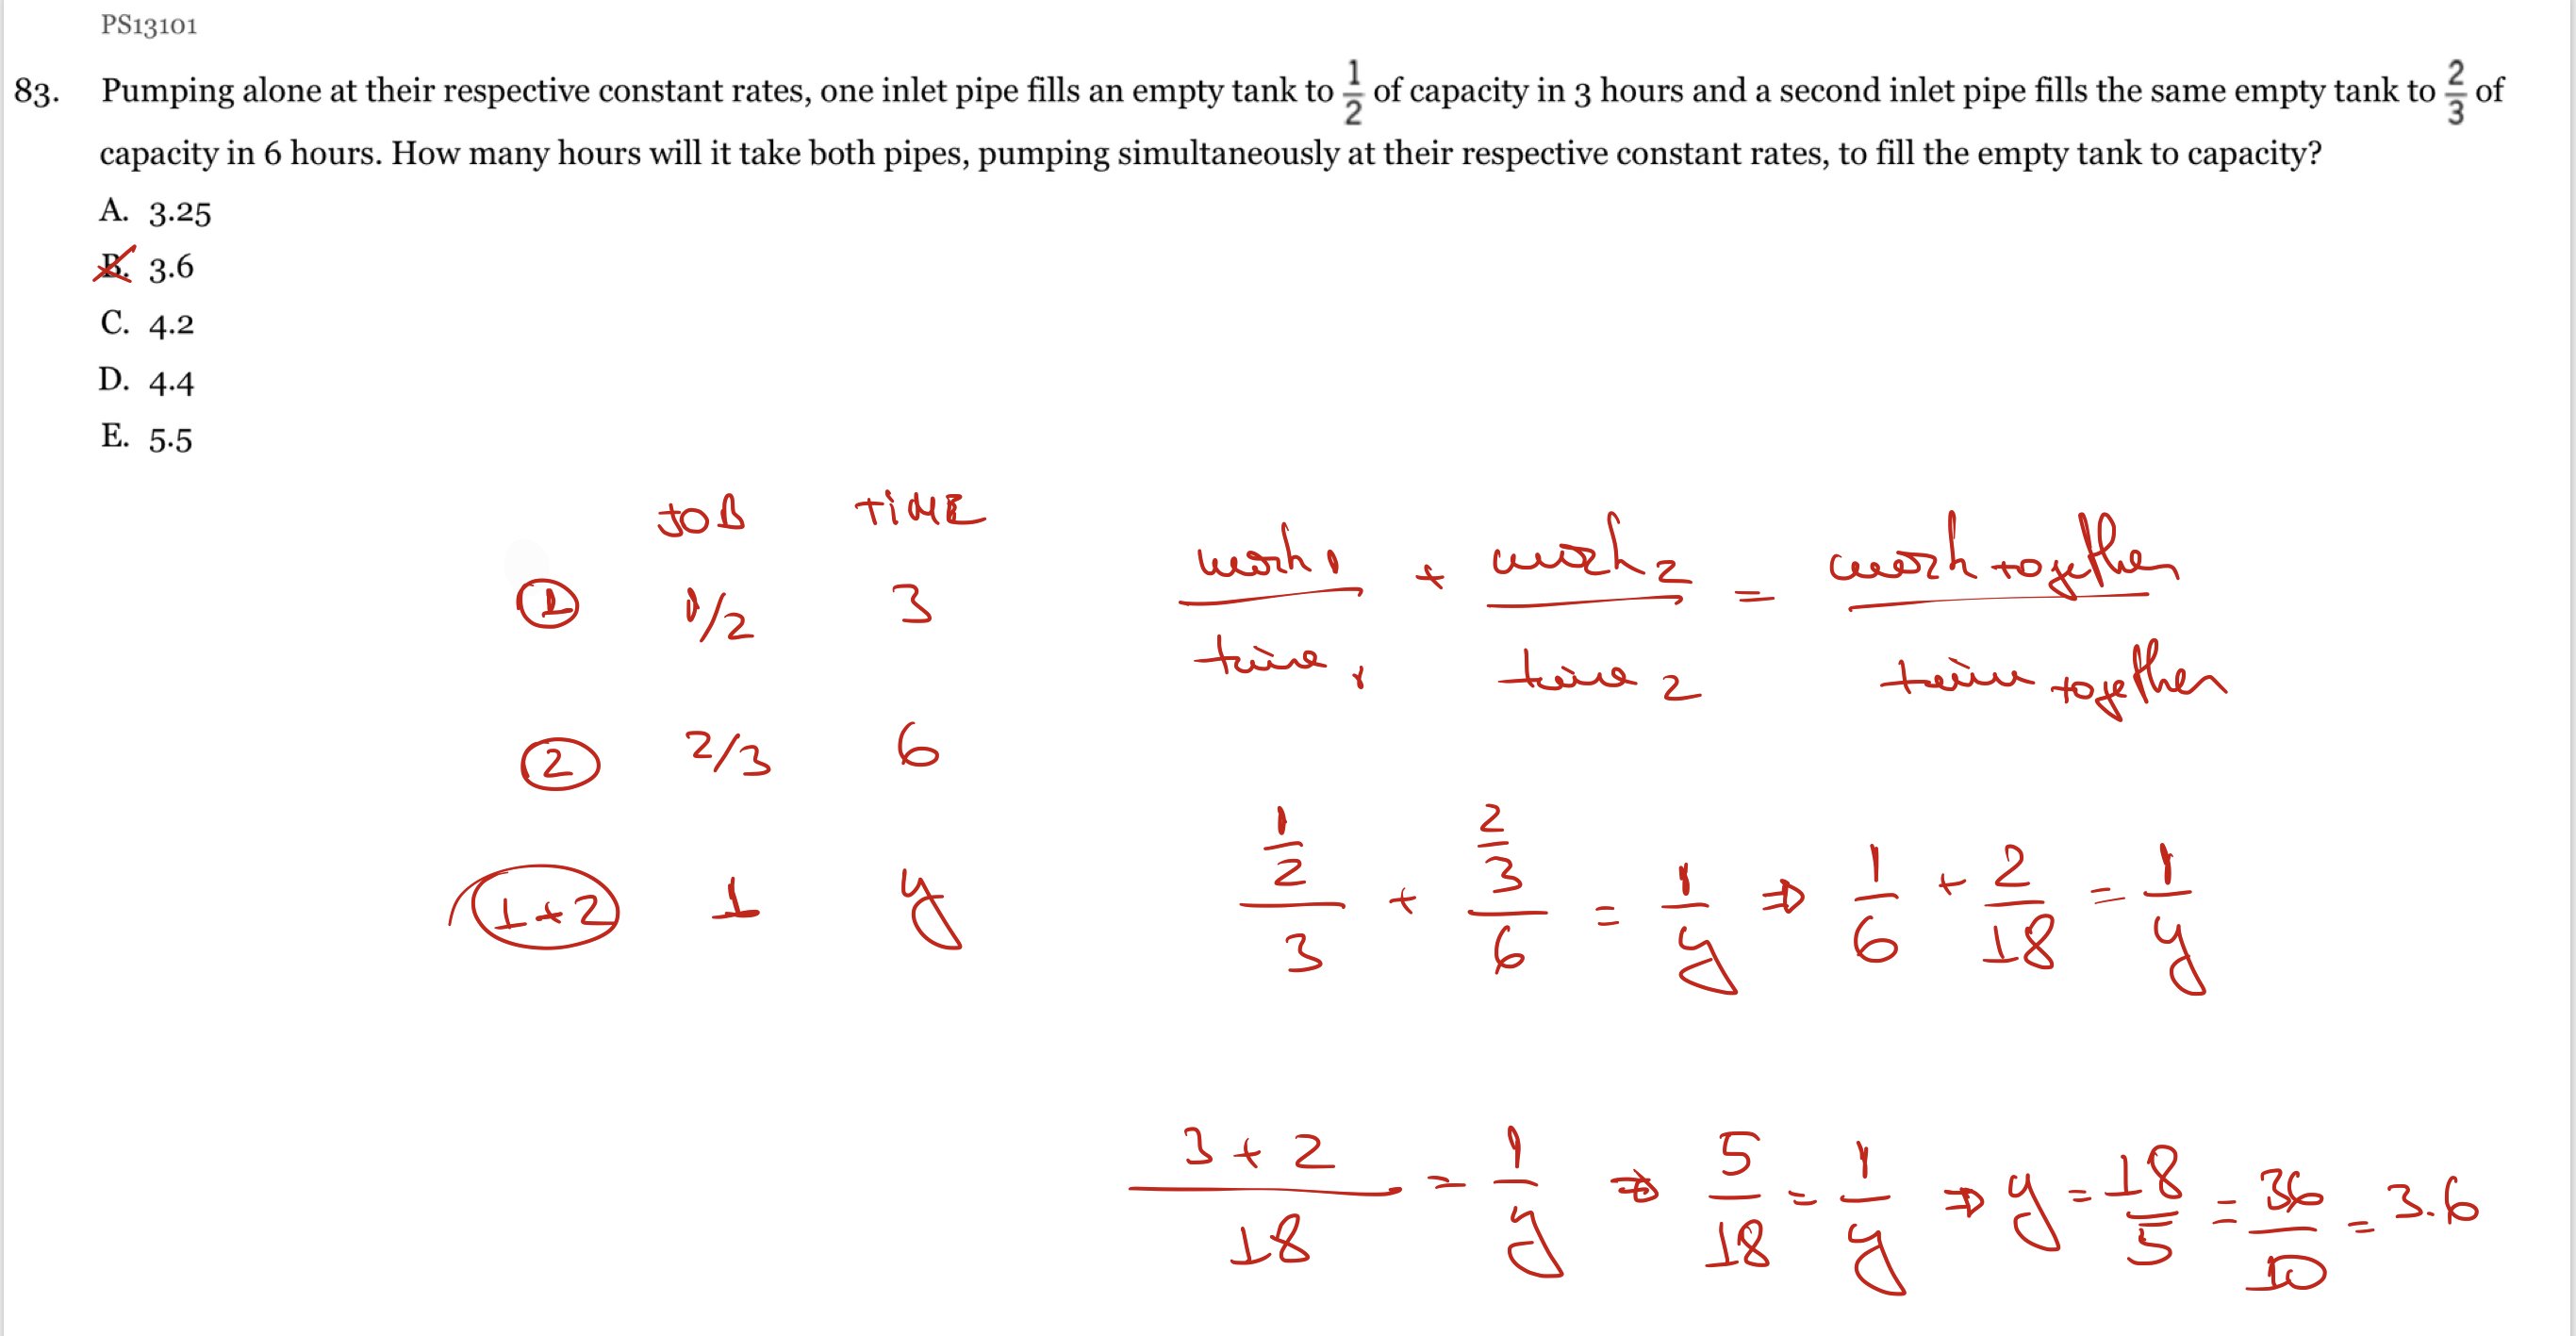 PS13101
83. Pumping alone at their respective constant rates, one inlet pipe fills an empty tank to 1/2 of capacity in 3 hours and a second inlet pipe fills the same empty tank to 2/3 of
capacity in 6 hours. How many hours will it take both pipes, pumping simultaneously at their respective constant rates, to fill the empty tank to capacity?
A. 3.25
B. 3.6
C. 4.2
D. 4.4
E. 5.5
JOB TiME
1 1/2 3
2 2/3 6
1+2 1 y
work 1 / time 1 + work 2 / time 2 = work together / time together
1/2 / 3 + 2/3 / 6 = 1/y ⇒ 1/6 + 2/18 = 1/y
3+2 / 18 = 1/y ⇒ 5/18 = 1/y ⇒ y = 18/5 = 36/10 = 3.6